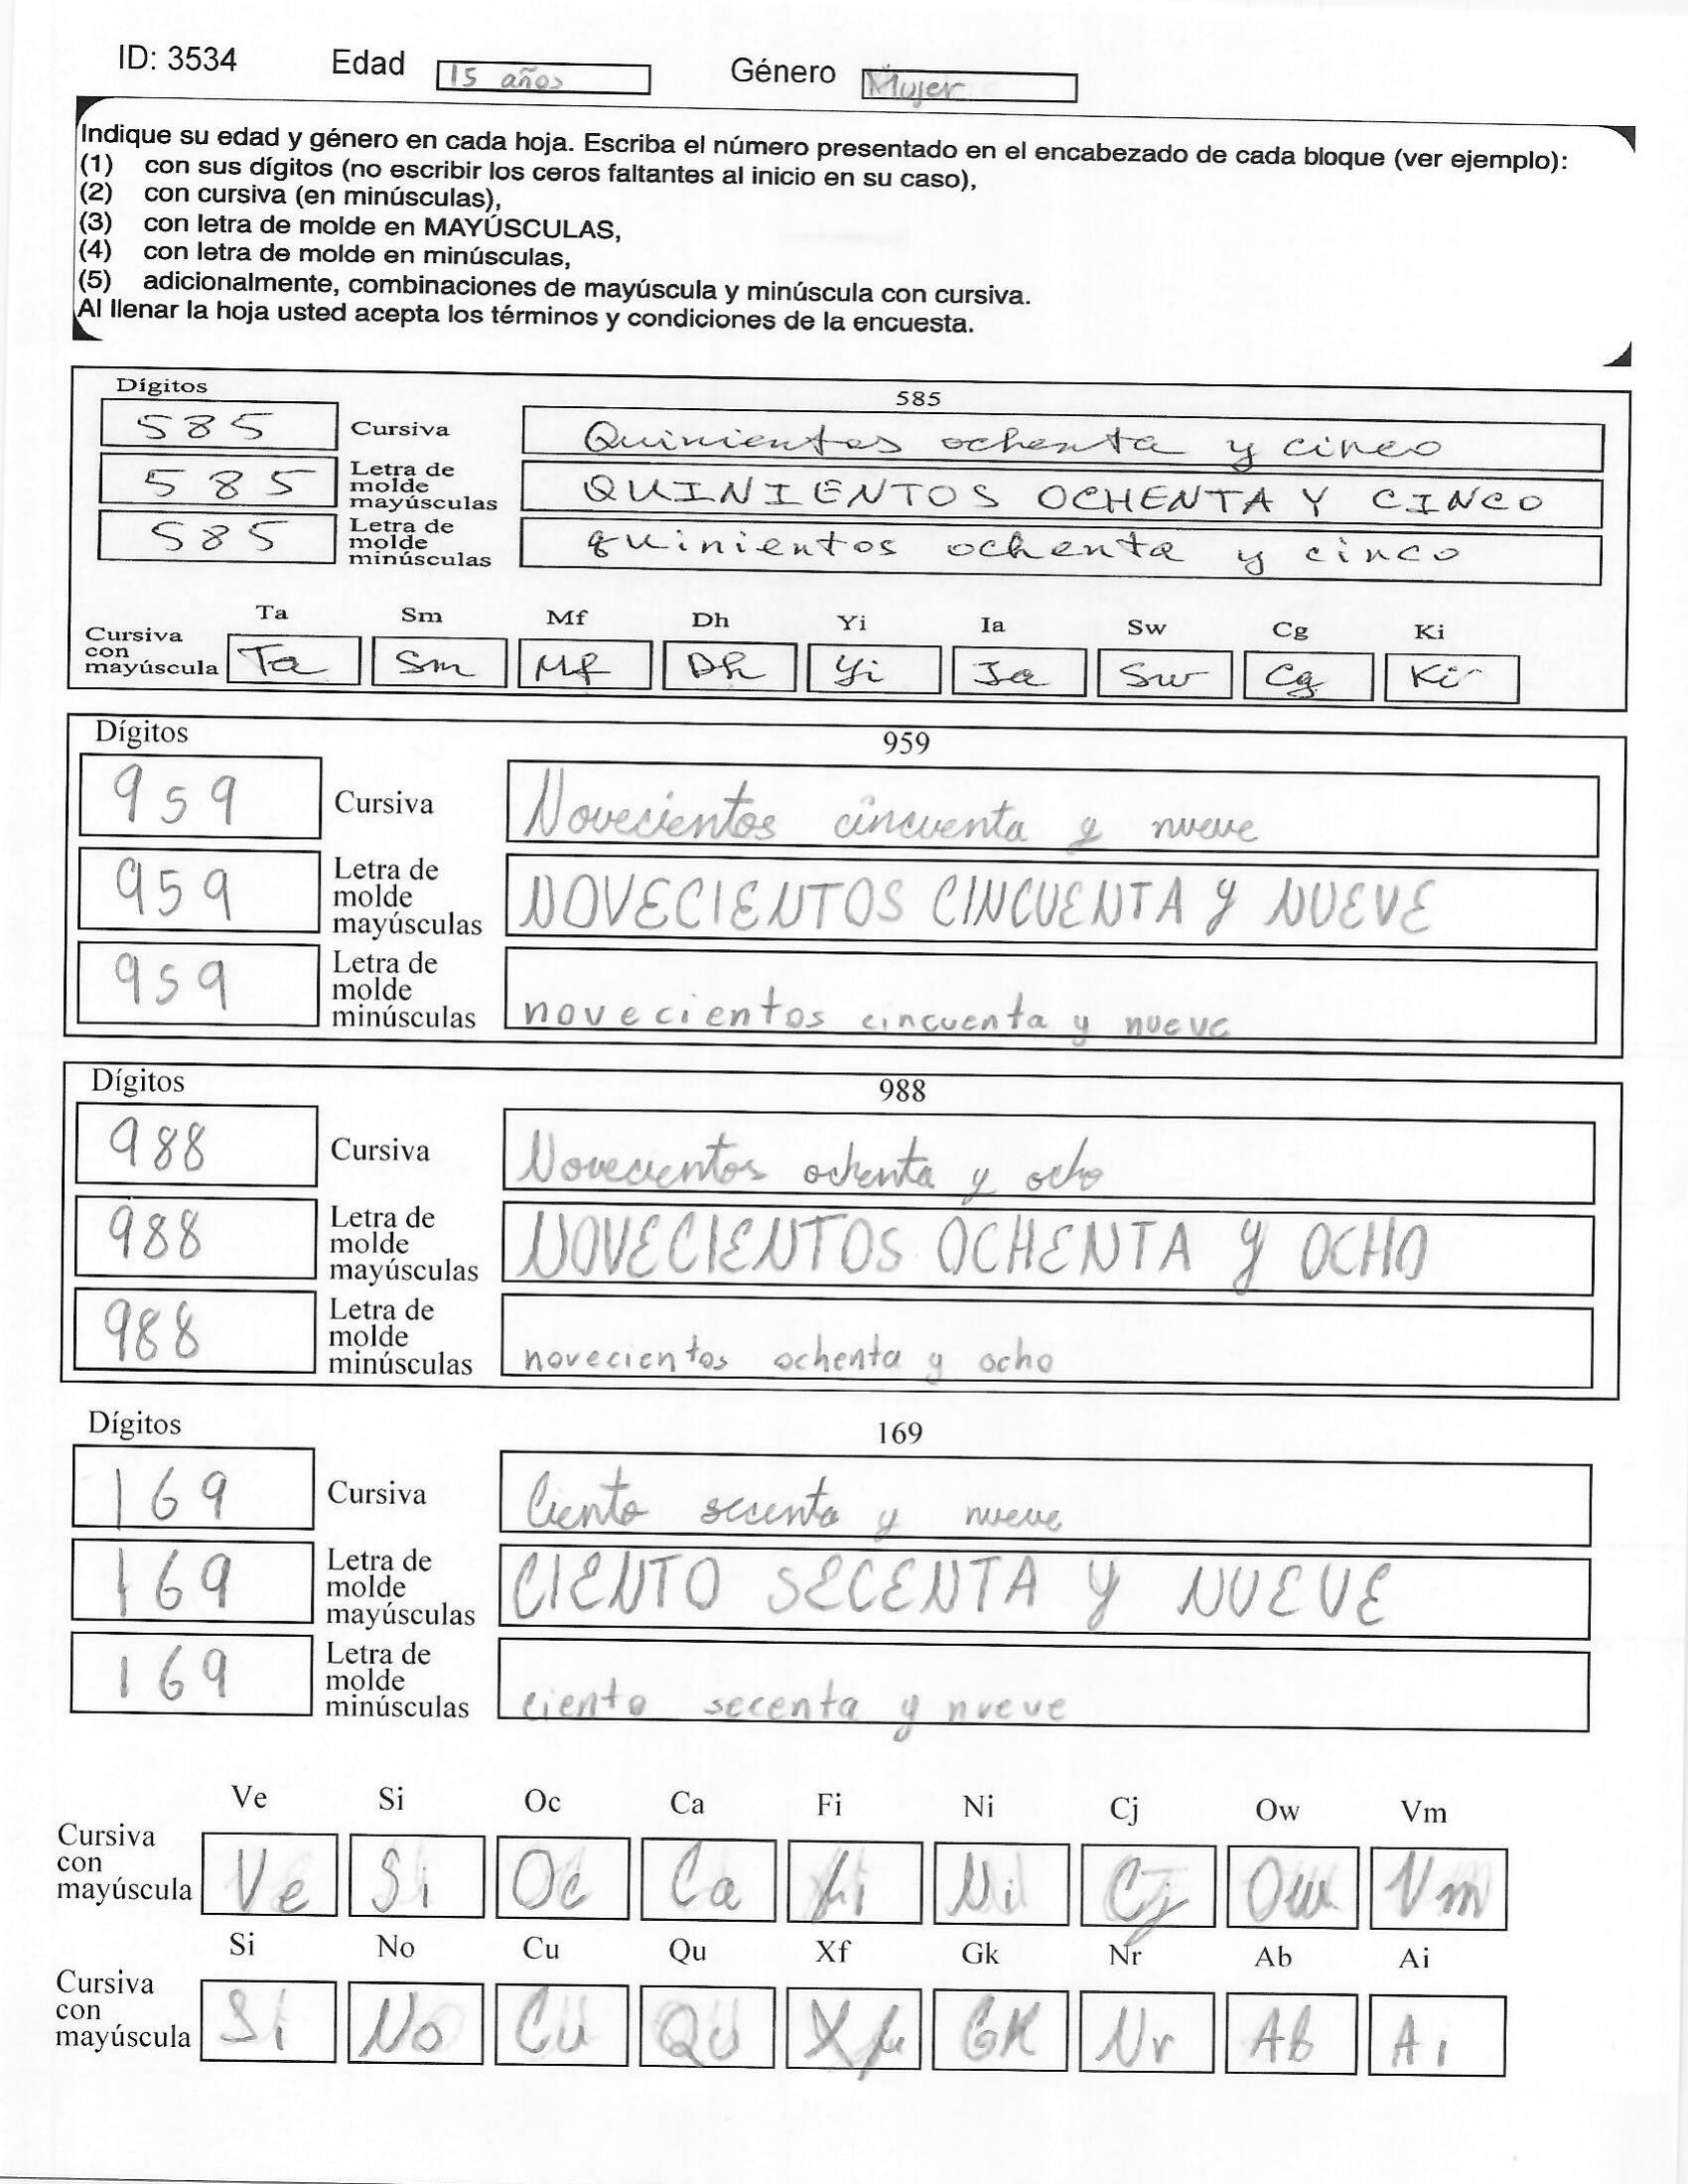 ID: 3534 Edad 15 años Género Mujer
Indique su edad y género en cada hoja. Escriba el número presentado en el encabezado de cada bloque (ver ejemplo):
(1) con sus dígitos (no escribir los ceros faltantes al inicio en su caso),
(2) con cursiva (en minúsculas),
(3) con letra de molde en MAYÚSCULAS,
(4) con letra de molde en minúsculas,
(5) adicionalmente, combinaciones de mayúscula y minúscula con cursiva.
Al llenar la hoja usted acepta los términos y condiciones de la encuesta.
Dígitos 585
585 Cursiva Quinientos ochenta y cinco
585 Letra de molde mayúsculas QUINIENTOS OCHENTA Y CINCO
585 Letra de molde minúsculas quinientos ochenta y cinco
Ta Sm Mf Dh Yi Ia Sw Cg Ki
Cursiva con mayúscula Ta Sm Mf Dh Yi Ia Sw Cg Ki
Dígitos 959
959 Cursiva Novecientos cincuenta y nueve
959 Letra de molde mayúsculas NOVECIENTOS CINCUENTA Y NUEVE
959 Letra de molde minúsculas novecientos cincuenta y nueve
Dígitos 988
988 Cursiva Novecientos ochenta y ocho
988 Letra de molde mayúsculas NOVECIENTOS OCHENTA Y OCHO
988 Letra de molde minúsculas novecientos ochenta y ocho
Dígitos 169
169 Cursiva Ciento secenta y nueve
169 Letra de molde mayúsculas CIENTO SECENTA Y NUEVE
169 Letra de molde minúsculas ciento secenta y nueve
Ve Si Oc Ca Fi Ni Cj Ow Vm
Cursiva con mayúscula Ve Si Oc Ca Fi Ni Cj Ow Vm
Si No Cu Qu Xf Gk Nr Ab Ai
Cursiva con mayúscula Si No Cu Qu Xf GK Nr Ab Ai